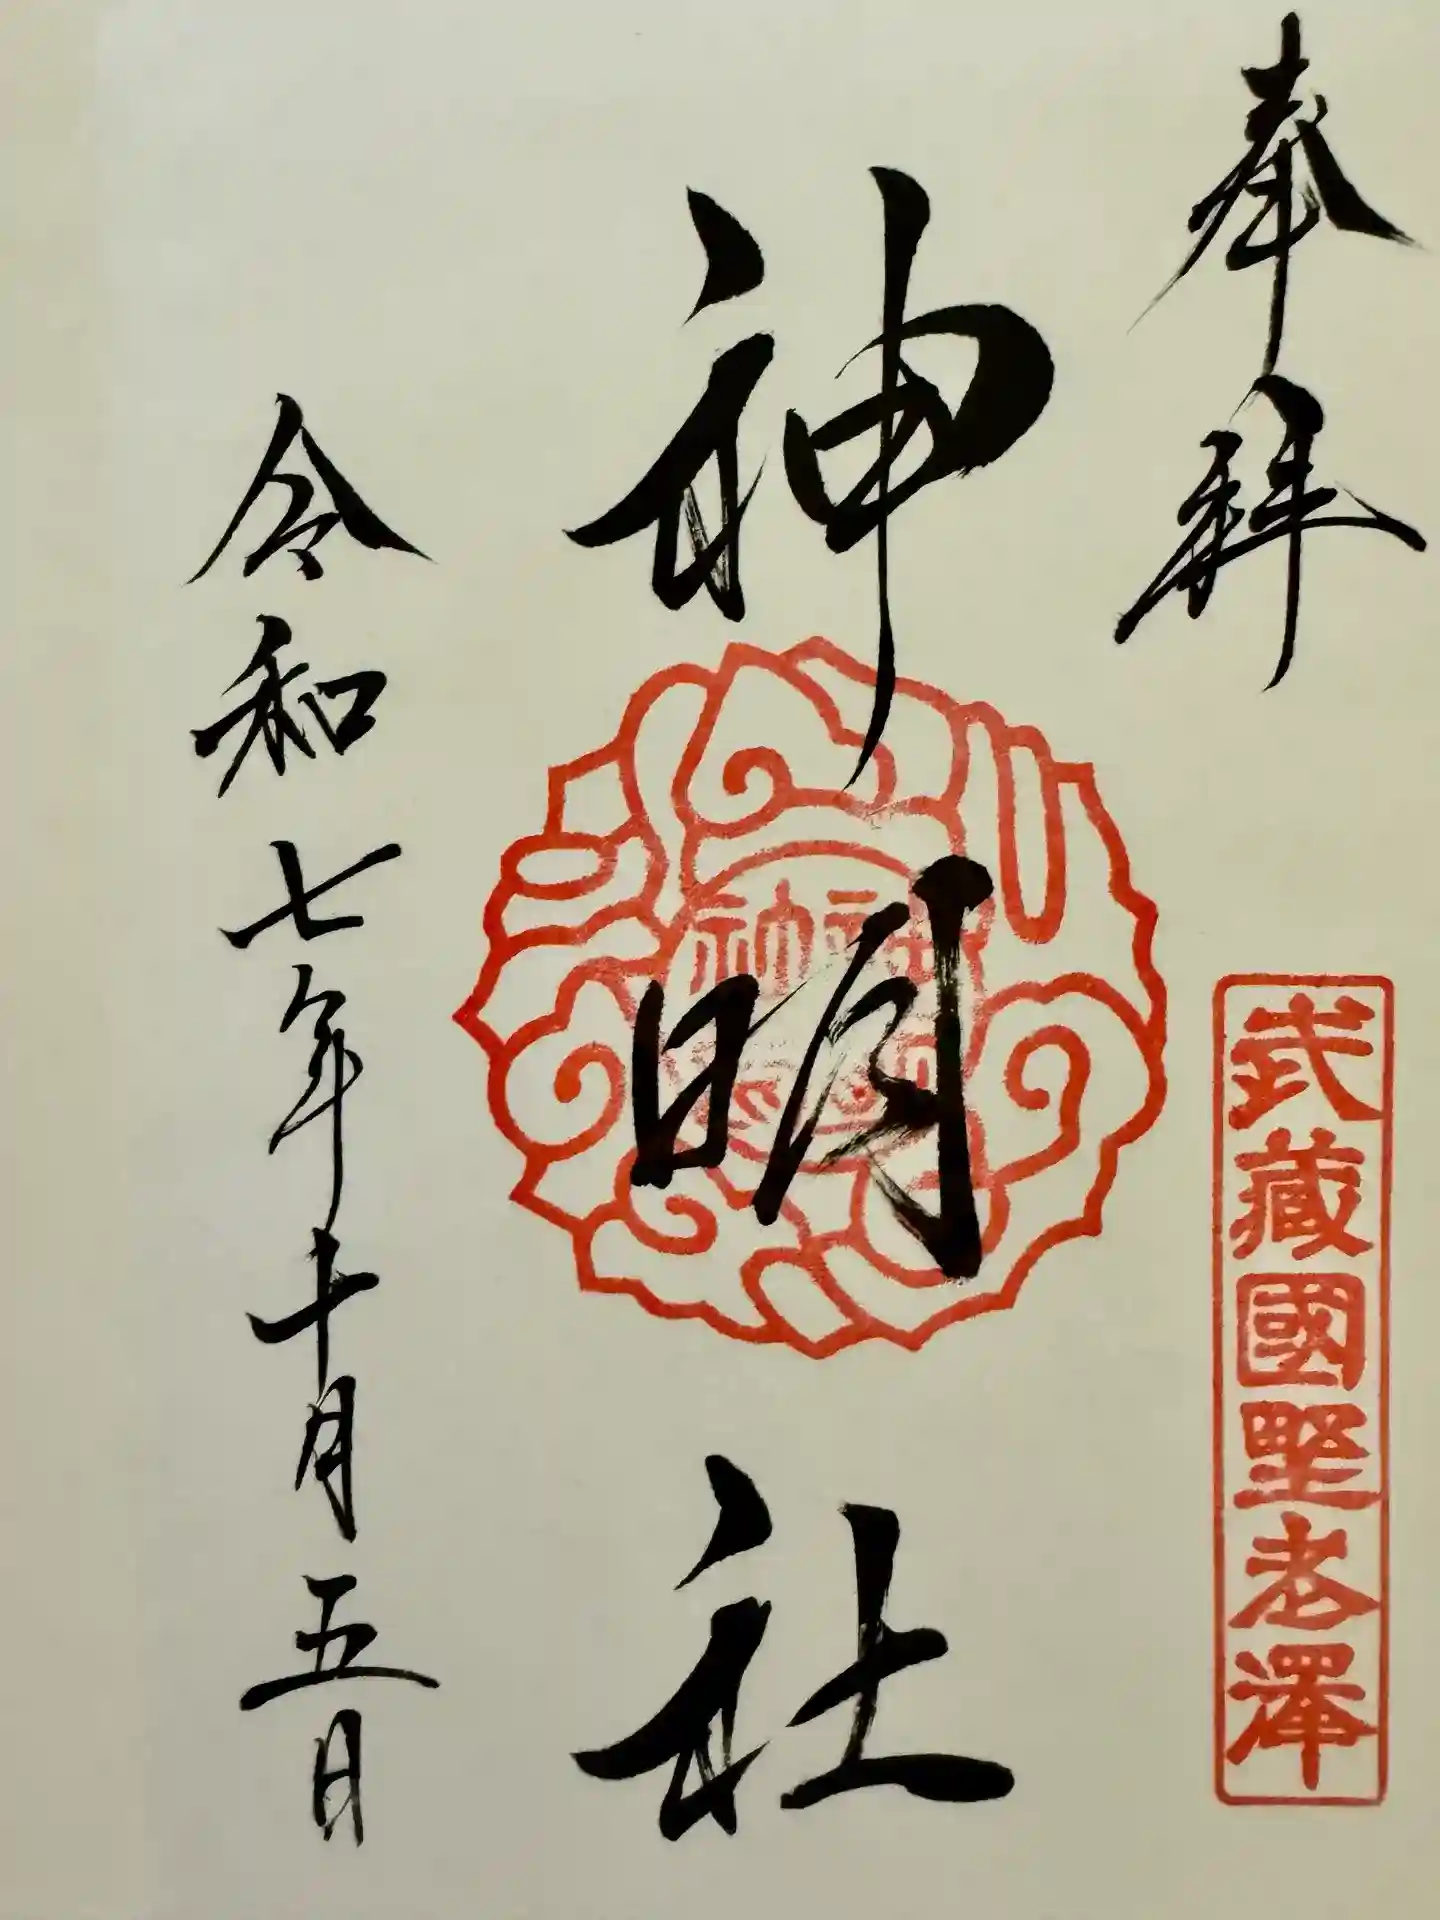 奉拝
武藏國野老澤
神明社
令和七年十月五日